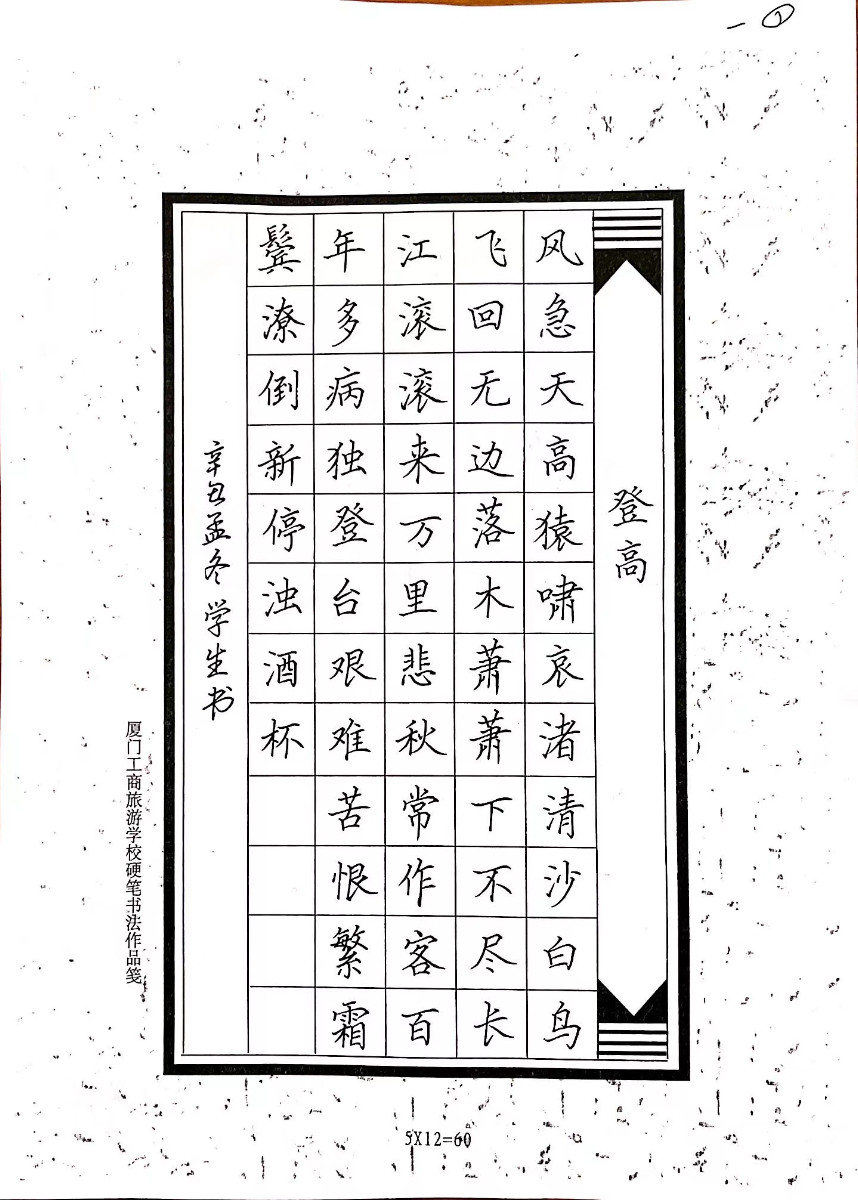 一①
登高
风急天高猿啸哀渚清沙白鸟
飞回无边落木萧萧下不尽长
江滚滚来万里悲秋常作客百
年多病独登台艰难苦恨繁霜
鬓潦倒新停浊酒杯
辛丑孟冬学生书
厦门工商旅游学校硬笔书法作品笺
5X12=60